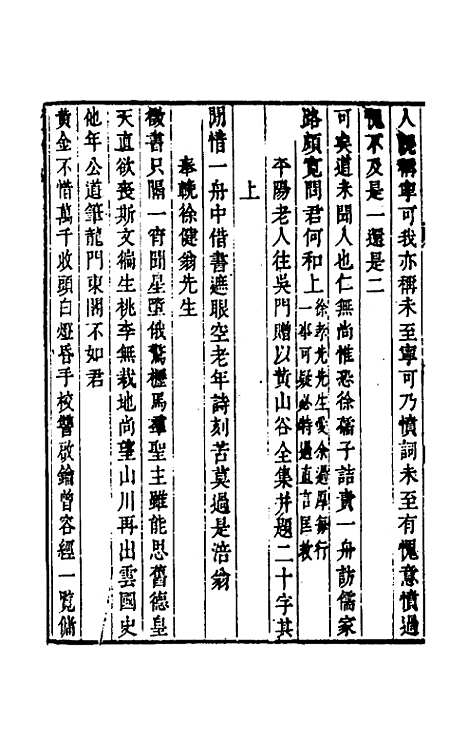 人說稱寧可我亦稱未至寧可乃憤詞未至有愧意憤過
愧不及是一還是二
可矣道未聞人也仁無尚惟恐徐孺子詰責一舟訪儒家
路頗寬問君何和上徐孝先先生愛余過厚錄行
一事可疑必特過直言匡救
平陽老人往吳門贈以黃山谷全集并題二十字其
上
閒惜一舟中借書遮眼空老年詩刻苦莫過是涪翁
奉輓徐健翁先生
徵書只隔一宵聞星墮俄驚櫪馬羣聖主雖能思舊德皇
天直欲喪斯文徧生桃李無栽地尚望山川再出雲國史
他年公道筆龍門東閣不如君
黃金不惜萬千收頭白燈昏手校讐啟鑰曾容經一覽備